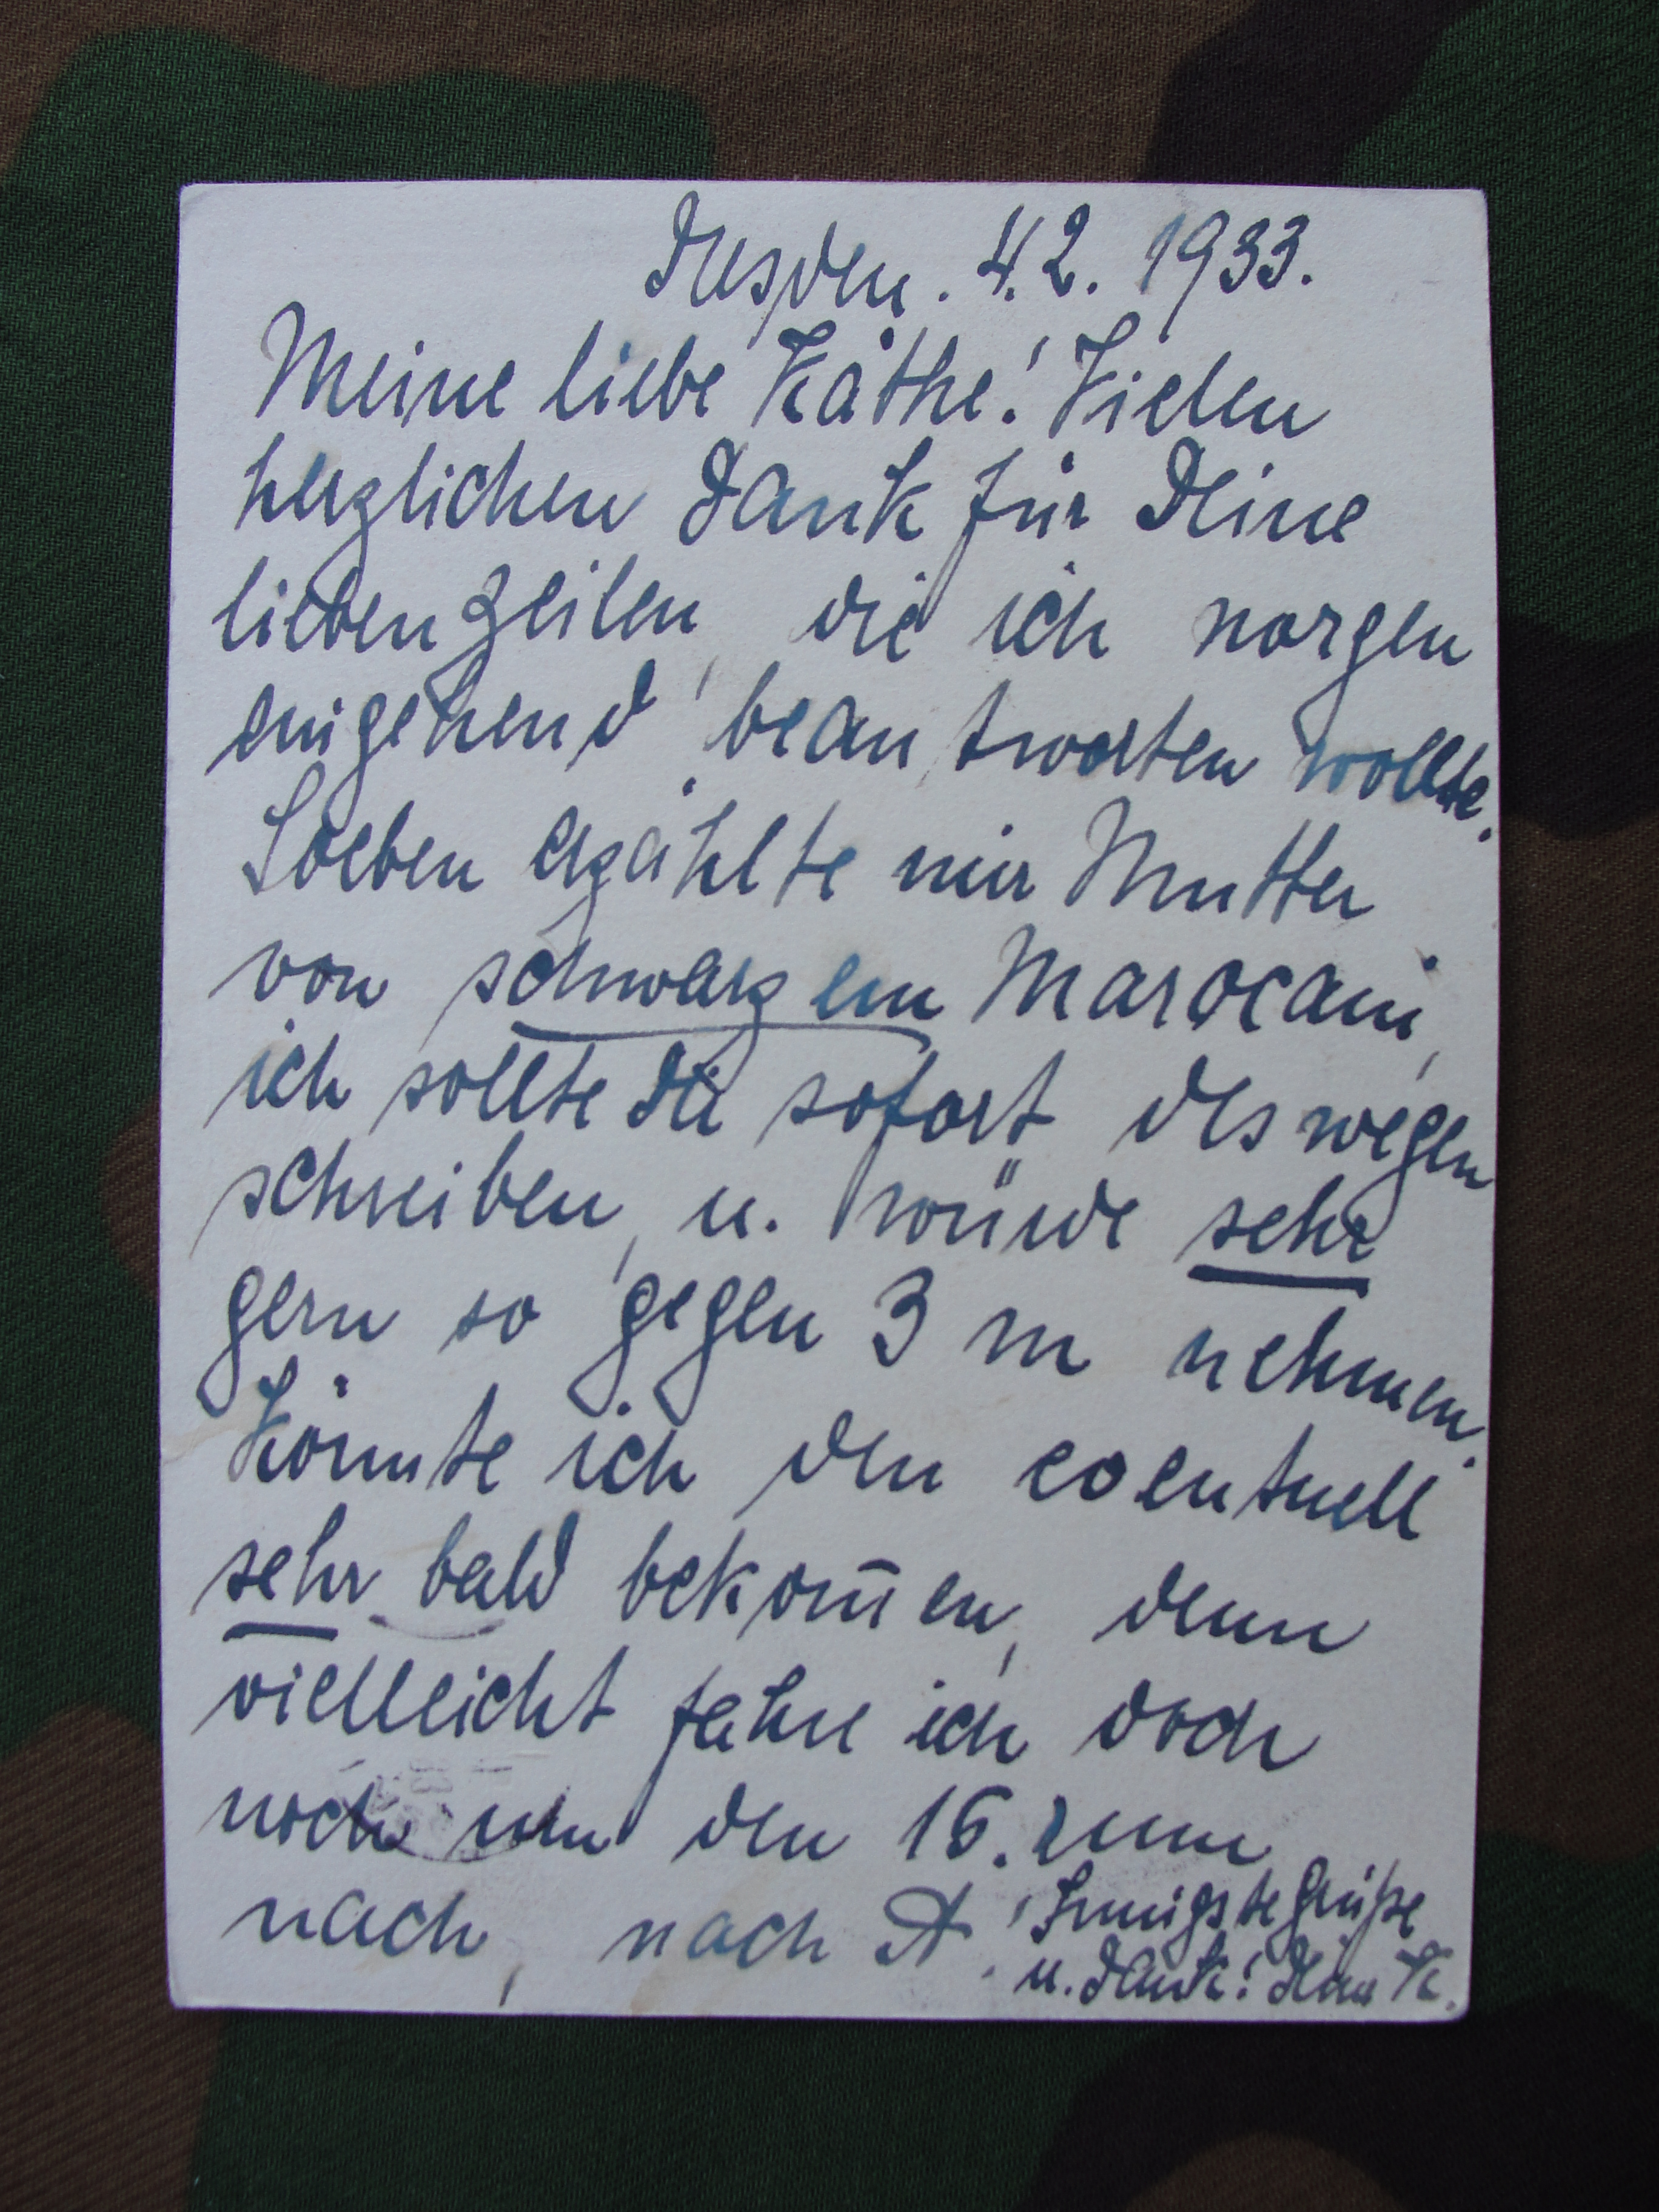 Dresden. 4.2. 1933.
Meine liebe Käthe! Vielen
herzlichen Dank für Deine
lieben Zeilen, die ich morgen
eingehend beantworten wollte.
Soeben erzählte mir Mutter
von schwarzem Marocain,
ich sollte Dir sofort deswegen
schreiben, u. würde sehr
gern so gegen 3 m nehmen.
Könnte ich den eventuell
sehr bald bekom̄en, denn
vielleicht fahre ich doch
noch um den 16.
nach, nach A. Innigste Grüße
u. Dank! Deine K.